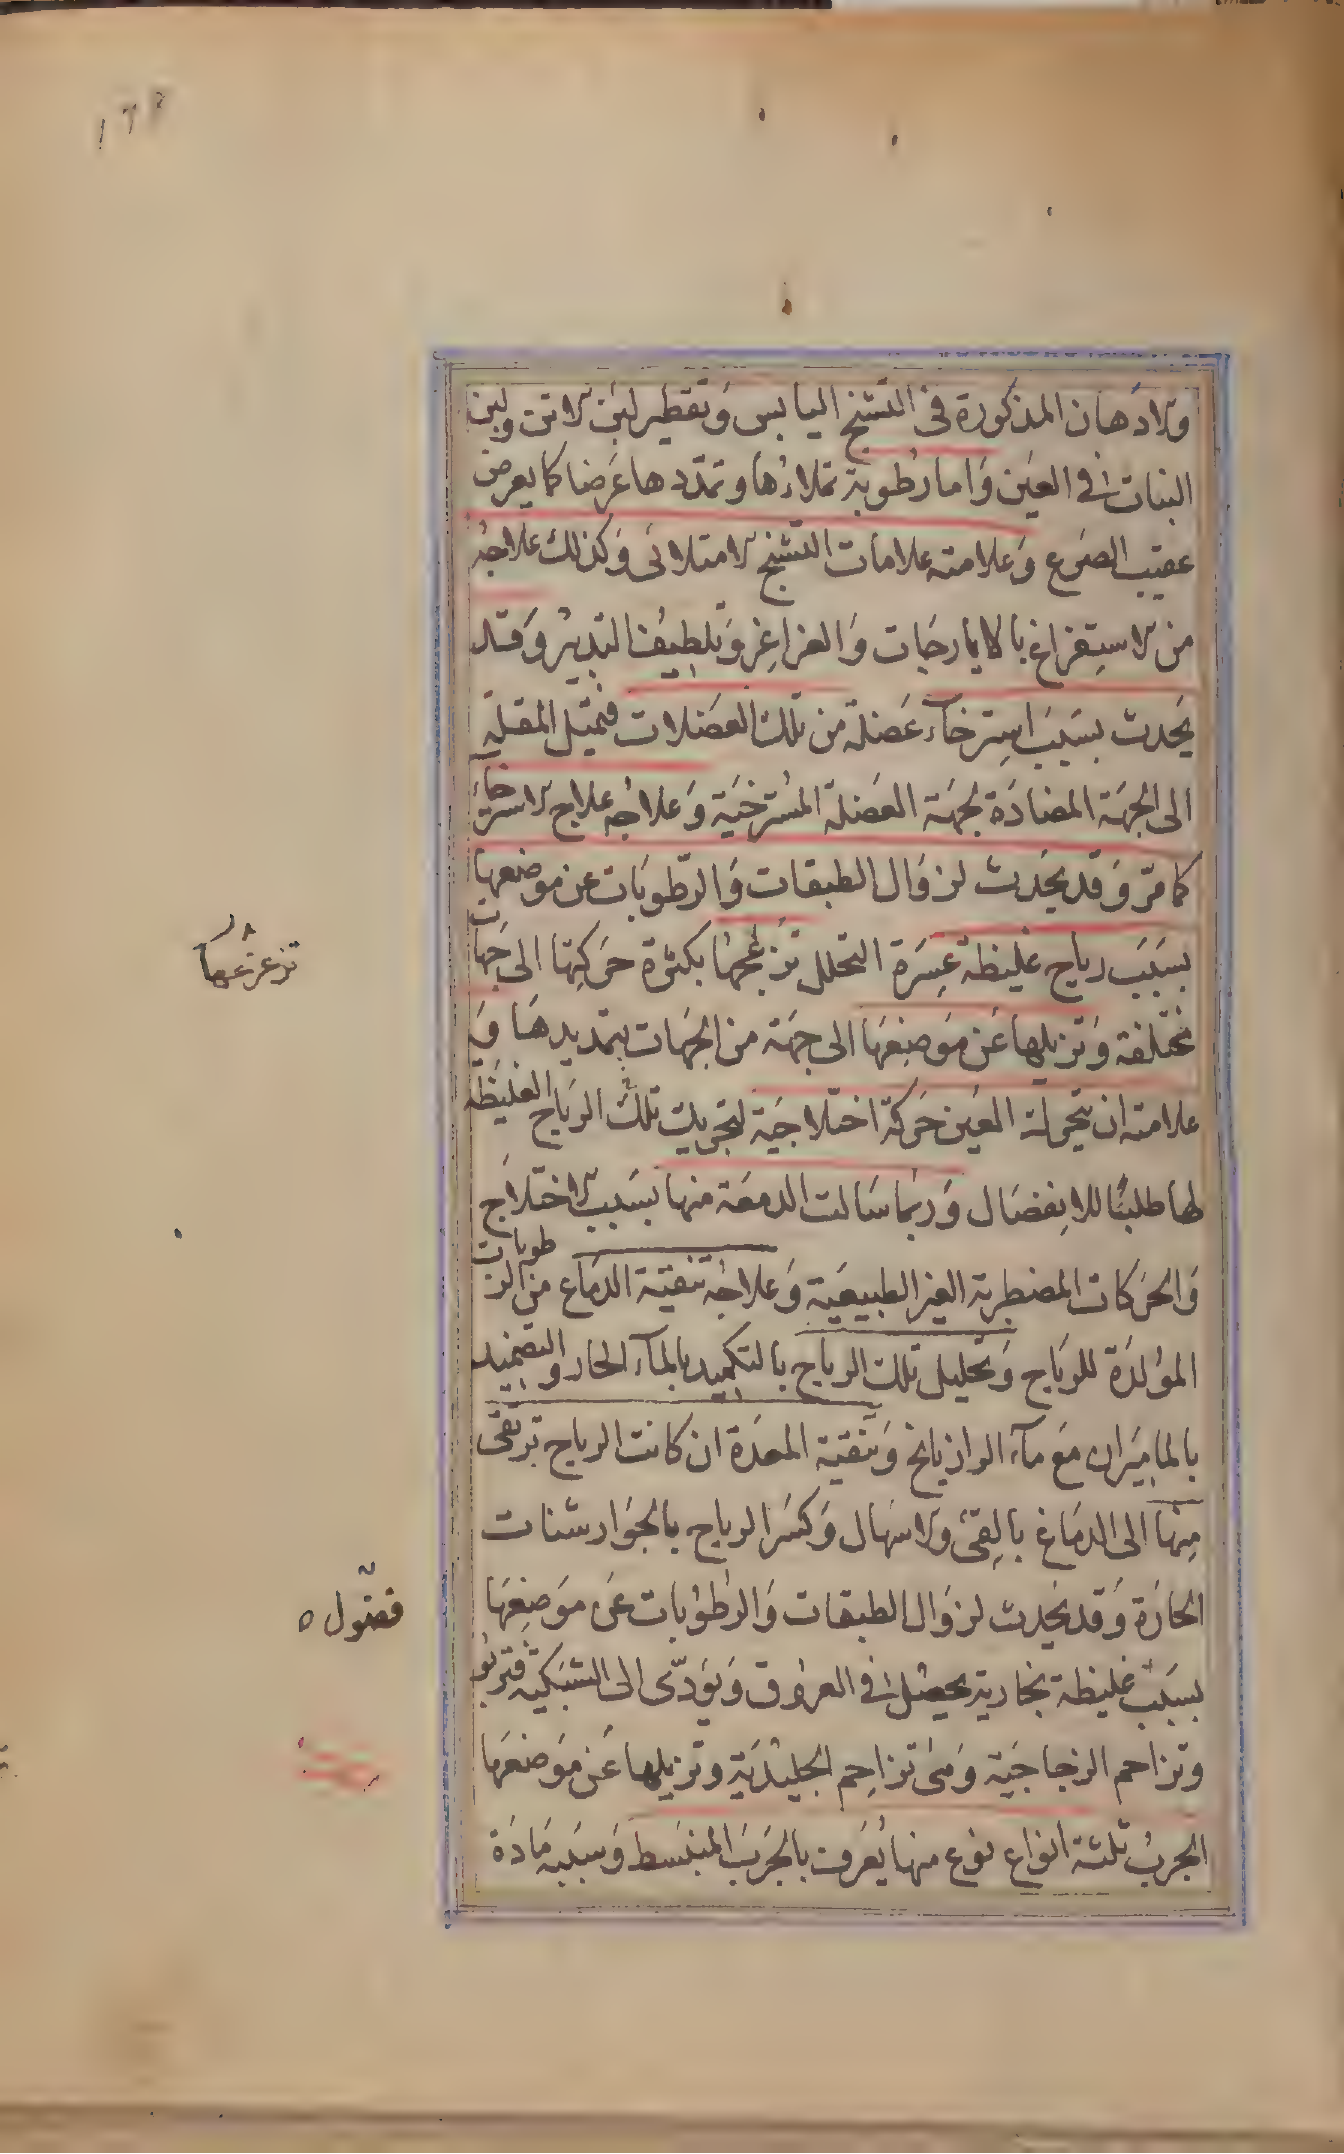 ۱۲۴
والادهان المذكورة فى التشنج اليابس وتقطير لبن الاتن ولبن
البنات فى العين واما رطوبة تملاءها وتمددها عرضا كما يعرض
عقيب الصرع وعلامته علامات التشنج الامتلائى وكذلك علاجه
من الاستفراغ بالايارجات والغراغر وتلطيف التدبير وقد
يحدث بسبب استرخآء عضلة من تلك العضلات فتميل المقلة
الى الجهة المضادة لجهة العضلة المسترخية وعلاجه علاج الاسترخاء
كما مر وقد يحدث لزوال الطبقات والرطوبات عن موضعها
بسبب رياح غليظة عسرة التحلل تزعجها بكثرة حركتها الى جهات
تزعزعها
مختلفة وتزيلها عن موضعها الى جهة من الجهات بتمديدها و
علامته ان يتحرك العين حركة اختلاجية لتحريك تلك الرياح الغليظة
لها طلبا للانفصال وربما سالت الدمعة منها بسبب الاختلاج
والحركات المضطربة الغير الطبيعية وعلاجه تنقية الدماغ من الرطوبات
المولدة للرياح وتحليل تلك الرياح بالتكميد بالمآء الحار والتضميد
بالماميران مع مآء الرازيانج وتنقية المعدة ان كانت الرياح ترتقى
منها الى الدماغ بالقئ والاسهال وكسر الرياح بالجوارشنات
الحارة وقد يحدث لزوال الطبقات والرطوبات عن موضعها
فضول
بسبب غليظة بخارية يحصل فى العروق ويؤدى الى الشبكية فتربو
وتزاحم الزجاجية وهى تزاحم الجليدية وتزيلها عن موضعها
الجرب ثلثة انواع نوع منها يعرف بالجرب المنبسط وسببه مادة